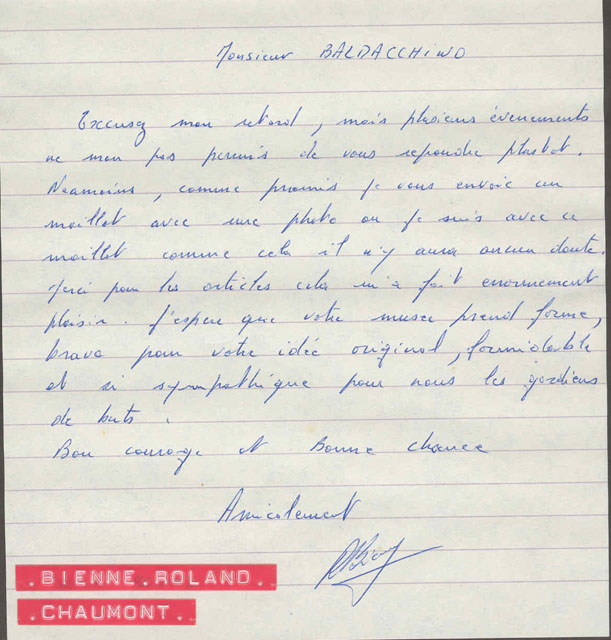 Monsieur BALDACCHINO
Excusez mon retard, mais plusieurs évenements
ne mon pas permis de vous repondre plustot.
Neamoins, comme promis je vous envoie un
maillot avec une photo ou je suis avec ce
maillot comme cela il n'y aura aucun doute.
Merci pour les articles cela m'a fait enormement
plaisir. J'espere que votre musee prend forme,
bravo pour votre idée original, formidable
et si sympathique pour nous les gardiens
de buts.
Bon courage et Bonne chance
Amicalement
.BIENNE.ROLAND.
.CHAUMONT.